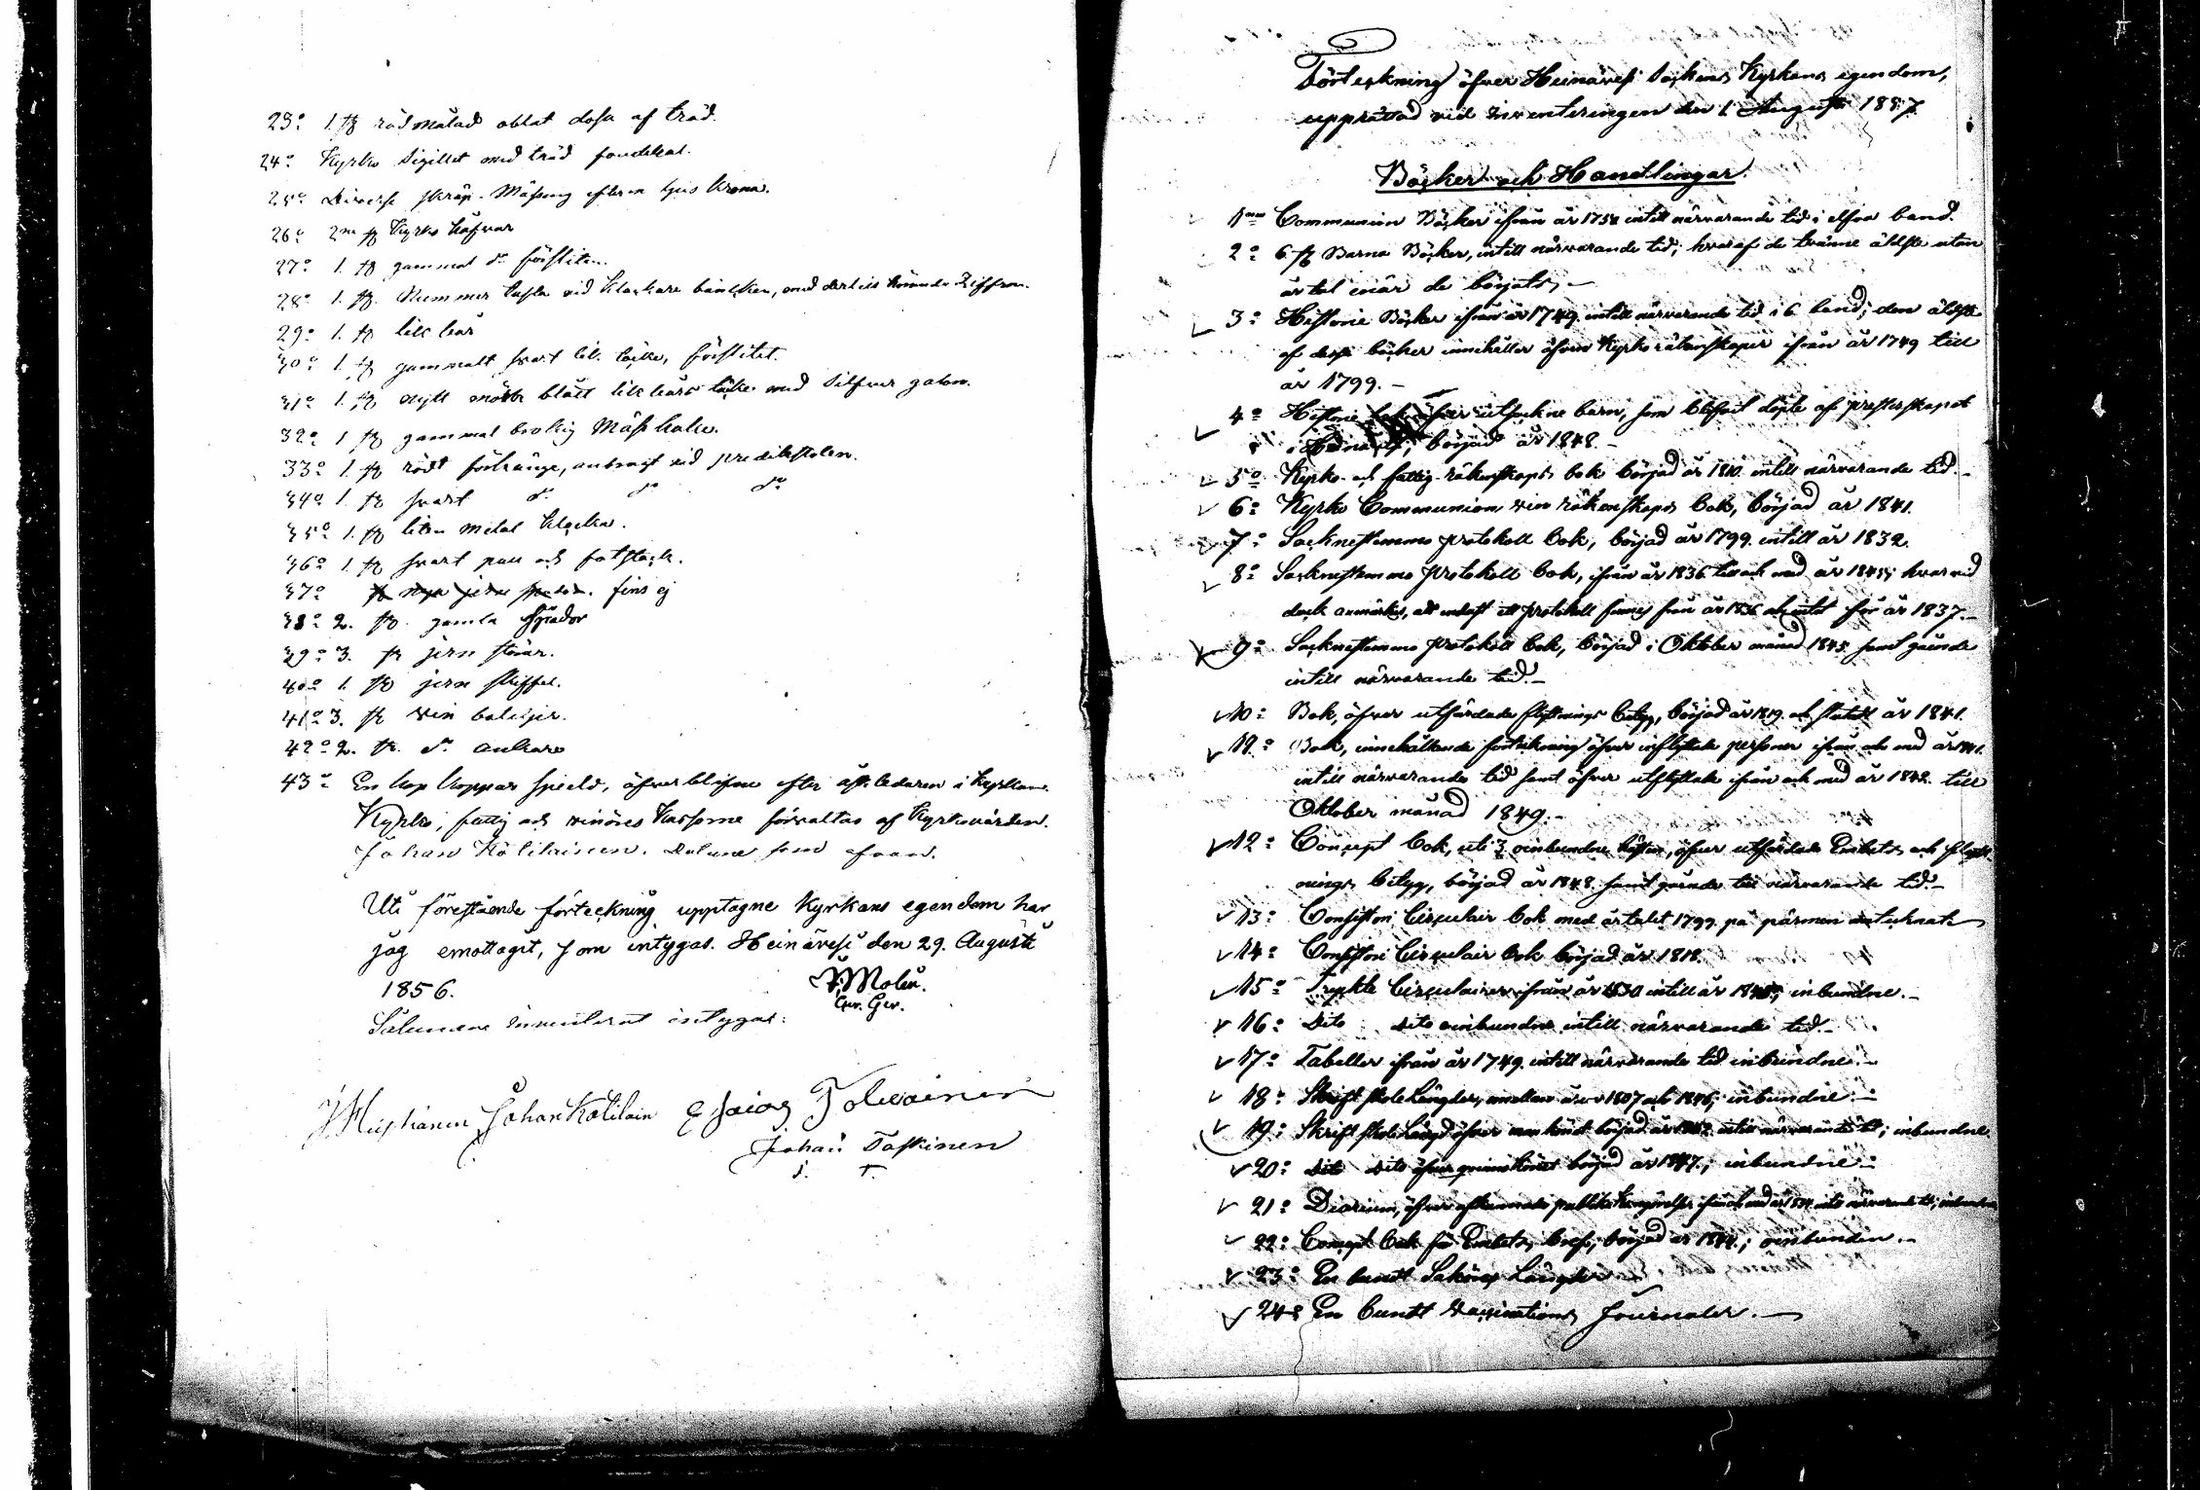 23:o 1. st rödmålad oblat dosa af träd.
24:o Kyrko Sigillet med träd foudekal.
25:o Diverse skräp. Mässing efter en ljus krona.
26:o 2:ne st Kyrko håfvar
27:o 1. st gammal d:o förstiten.
28:o 1. st. Nummer tafla vid klockare bänken, med dertill hörande Ziffror.
29:o 1. st lik bår
30:o 1. st gammalt svart lik täcke, förslitet.
31:o 1. st nytt mörk blått lik bårs täcke med silfver galon.
32:o 1 st gammal brokig Mäss hake.
33:o 1. st rödt förhänge, anbragt vid predikstolen.
34:o 1. st svart d:o d:o d:o
35:o 1. st liten metal klocka.
36:o 1. st svart pall och fotstock.
37:o st nya jern spador. fins ej
38:o 2. st. gamla spador
39:o 3. st jern störar.
40:o 1. st jern skiffel.
41:o 3. st vin bateljer.
42:o 2. st. d:o ankare
43:o En hop koppar speld, öfverblefne efter åskledaren i kyrkan.
Kyrko, fattig och vinöres Kassorne förvaltas af Kyrkovärden.
Johan Kolilainen. Datum som ofvan.
Uti förestående förteckning upptagne Kyrkans egendom har
jag emottagit, som intygas. Heinävesi den 29. Augusti
1856.
Molin.
Sålunda inventerat intygar:
Johan Kolilain Esaias Tolvainin
Johan Taskinen
J. T.
Förteckning öfver Heinävesi Sockens Kyrkans egendom,
upprättad vid Inventeringen den 1. Augusti 1857.
Böcker och Handlingar.
1:mo Communion Böcker ifrån år 1758 intill närvarande tid i elfva band.
2:o 6 st Barna Böcker, intill närvarande tid; hvaraf de tvänne äldste utan
årtal när de börjats.-
3:o Historie Böcker ifrån år 1749. intill närvarande tid i 6 band; den äldste
af dessa böcker innehåller äfven Kyrko räkenskaper ifrån år 1749 till
år 1799.-
4:o Historie bok öfver utsockne barn, som blifvit döpte af presterskapet
i Heinävesi, börjad år 1848.-
5:o Kyrko- och fattig-räkenskaps bok börjad år 1810. intill närvarande tid.-
6:o Kyrko Communion vin räkenskaps bok, börjad år 1841.
7:o Socknestemmo protokoll bok, börjad år 1799. intill år 1832.
8:o Sockenstemmo protokoll bok, ifrån år 1836 till och med år 1845; hvarvid
dock anmärkes, att endast ett protokoll finnes från år 1836 och intet för år 1837.-
9:o Sockenstemmo protokoll bok, börjad i Oktober månad 1845 samt gående
intill närvarande tid.-
10:o Bok, öfver utfärdade flyttnings betyg, börjad år 1819. och slutad år 1841.
11:o Bok, innehållande förteckning öfver inflyttade personer ifrån och med år 1841.
intill närvarande tid samt öfver utflyttade ifrån och med år 1842. till
Oktober månad 1849.-
12:o Concept bok, uti 3 oinbundne häften, öfver utfärdade Embets och flytt-
nings betyg, börjad år 1848. samt gående till närvarande tid.-
13:o Consistorii Circulair bok med årtalet 1799. på pärmen antecknat.
14:o Consistorii Circulair bok börjad år 1818.
15:o Tryckte Circulairer ifrån år 1830 intill år 1845; inbundne.-
16:o Dito dito oinbundne intill närvarande tid.-
17:o Tabeller ifrån år 1749. intill närvarande tid inbundne.-
18:o Skriftskole Längder, emellan åren 1807 och 1846; inbundne.-
19:o Skriftskole Längd öfver mankönet börjad år 1847. intill närvarande tid; inbunden.
20:o dito dito öfver qvinnkönet börjad år 1847.; inbunden.-
21:o Diarium, öfver afkunnade publika kungörelser ifrån och med år intill närvarande tid; inbunden
22:o Concept bok för Embets bref, börjad år 1844.; oinbunden.-
23:o En bundt Saköres Längder
24:o En bundt Vaccinations Journaler.-